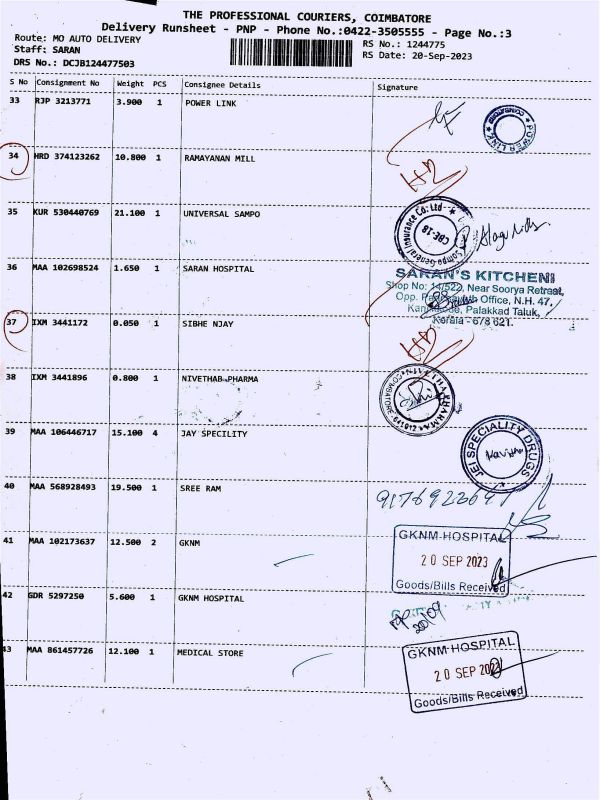 THE PROFESSIONAL COURIERS, COIMBATORE
Delivery Runsheet - PNP - Phone No.:0422-3505555 - Page No.:3
Route: MO AUTO DELIVERY
RS No.: 1244775
Staff: SARAN
RS Date: 20-Sep-2023
DRS No.: DCJB124477503
S No Consignment No Weight PCS Consignee Details Signature
33 RJP 3213771 3.900 1 POWER LINK
POWER LINK
COIMBATORE
34 HRD 374123262 10.800 1 RAMAYANAN MILL
35 KUR 530440769 21.100 1 UNIVERSAL SAMPO
Sompo General Insurance Co; Ltd
CBE-18
36 MAA 102698524 1.650 1 SARAN HOSPITAL
SARAN'S KITCHEN
Shop No: 14/522, Near Soorya Retreat,
Office, N.H. 47,
Palakkad Taluk,
Kerala - 678 621.
37 IXM 3441172 0.050 1 SIBHE NJAY
38 IXM 3441896 0.800 1 NIVETHAB PHARMA
NIVETHA PHARMA
COIMBATORE-641012
39 MAA 106446717 15.100 4 JAY SPECILITY
JEI SPECIALITY DRUGS
40 MAA 568928493 19.500 1 SREE RAM
41 MAA 102173637 12.500 2 GKNM
GKNM HOSPITAL
20 SEP 2023
Goods/Bills Received
42 GDR 5297250 5.600 1 GKNM HOSPITAL
43 MAA 861457726 12.100 1 MEDICAL STORE
GKNM HOSPITAL
20 SEP 2023
Goods/Bills Received